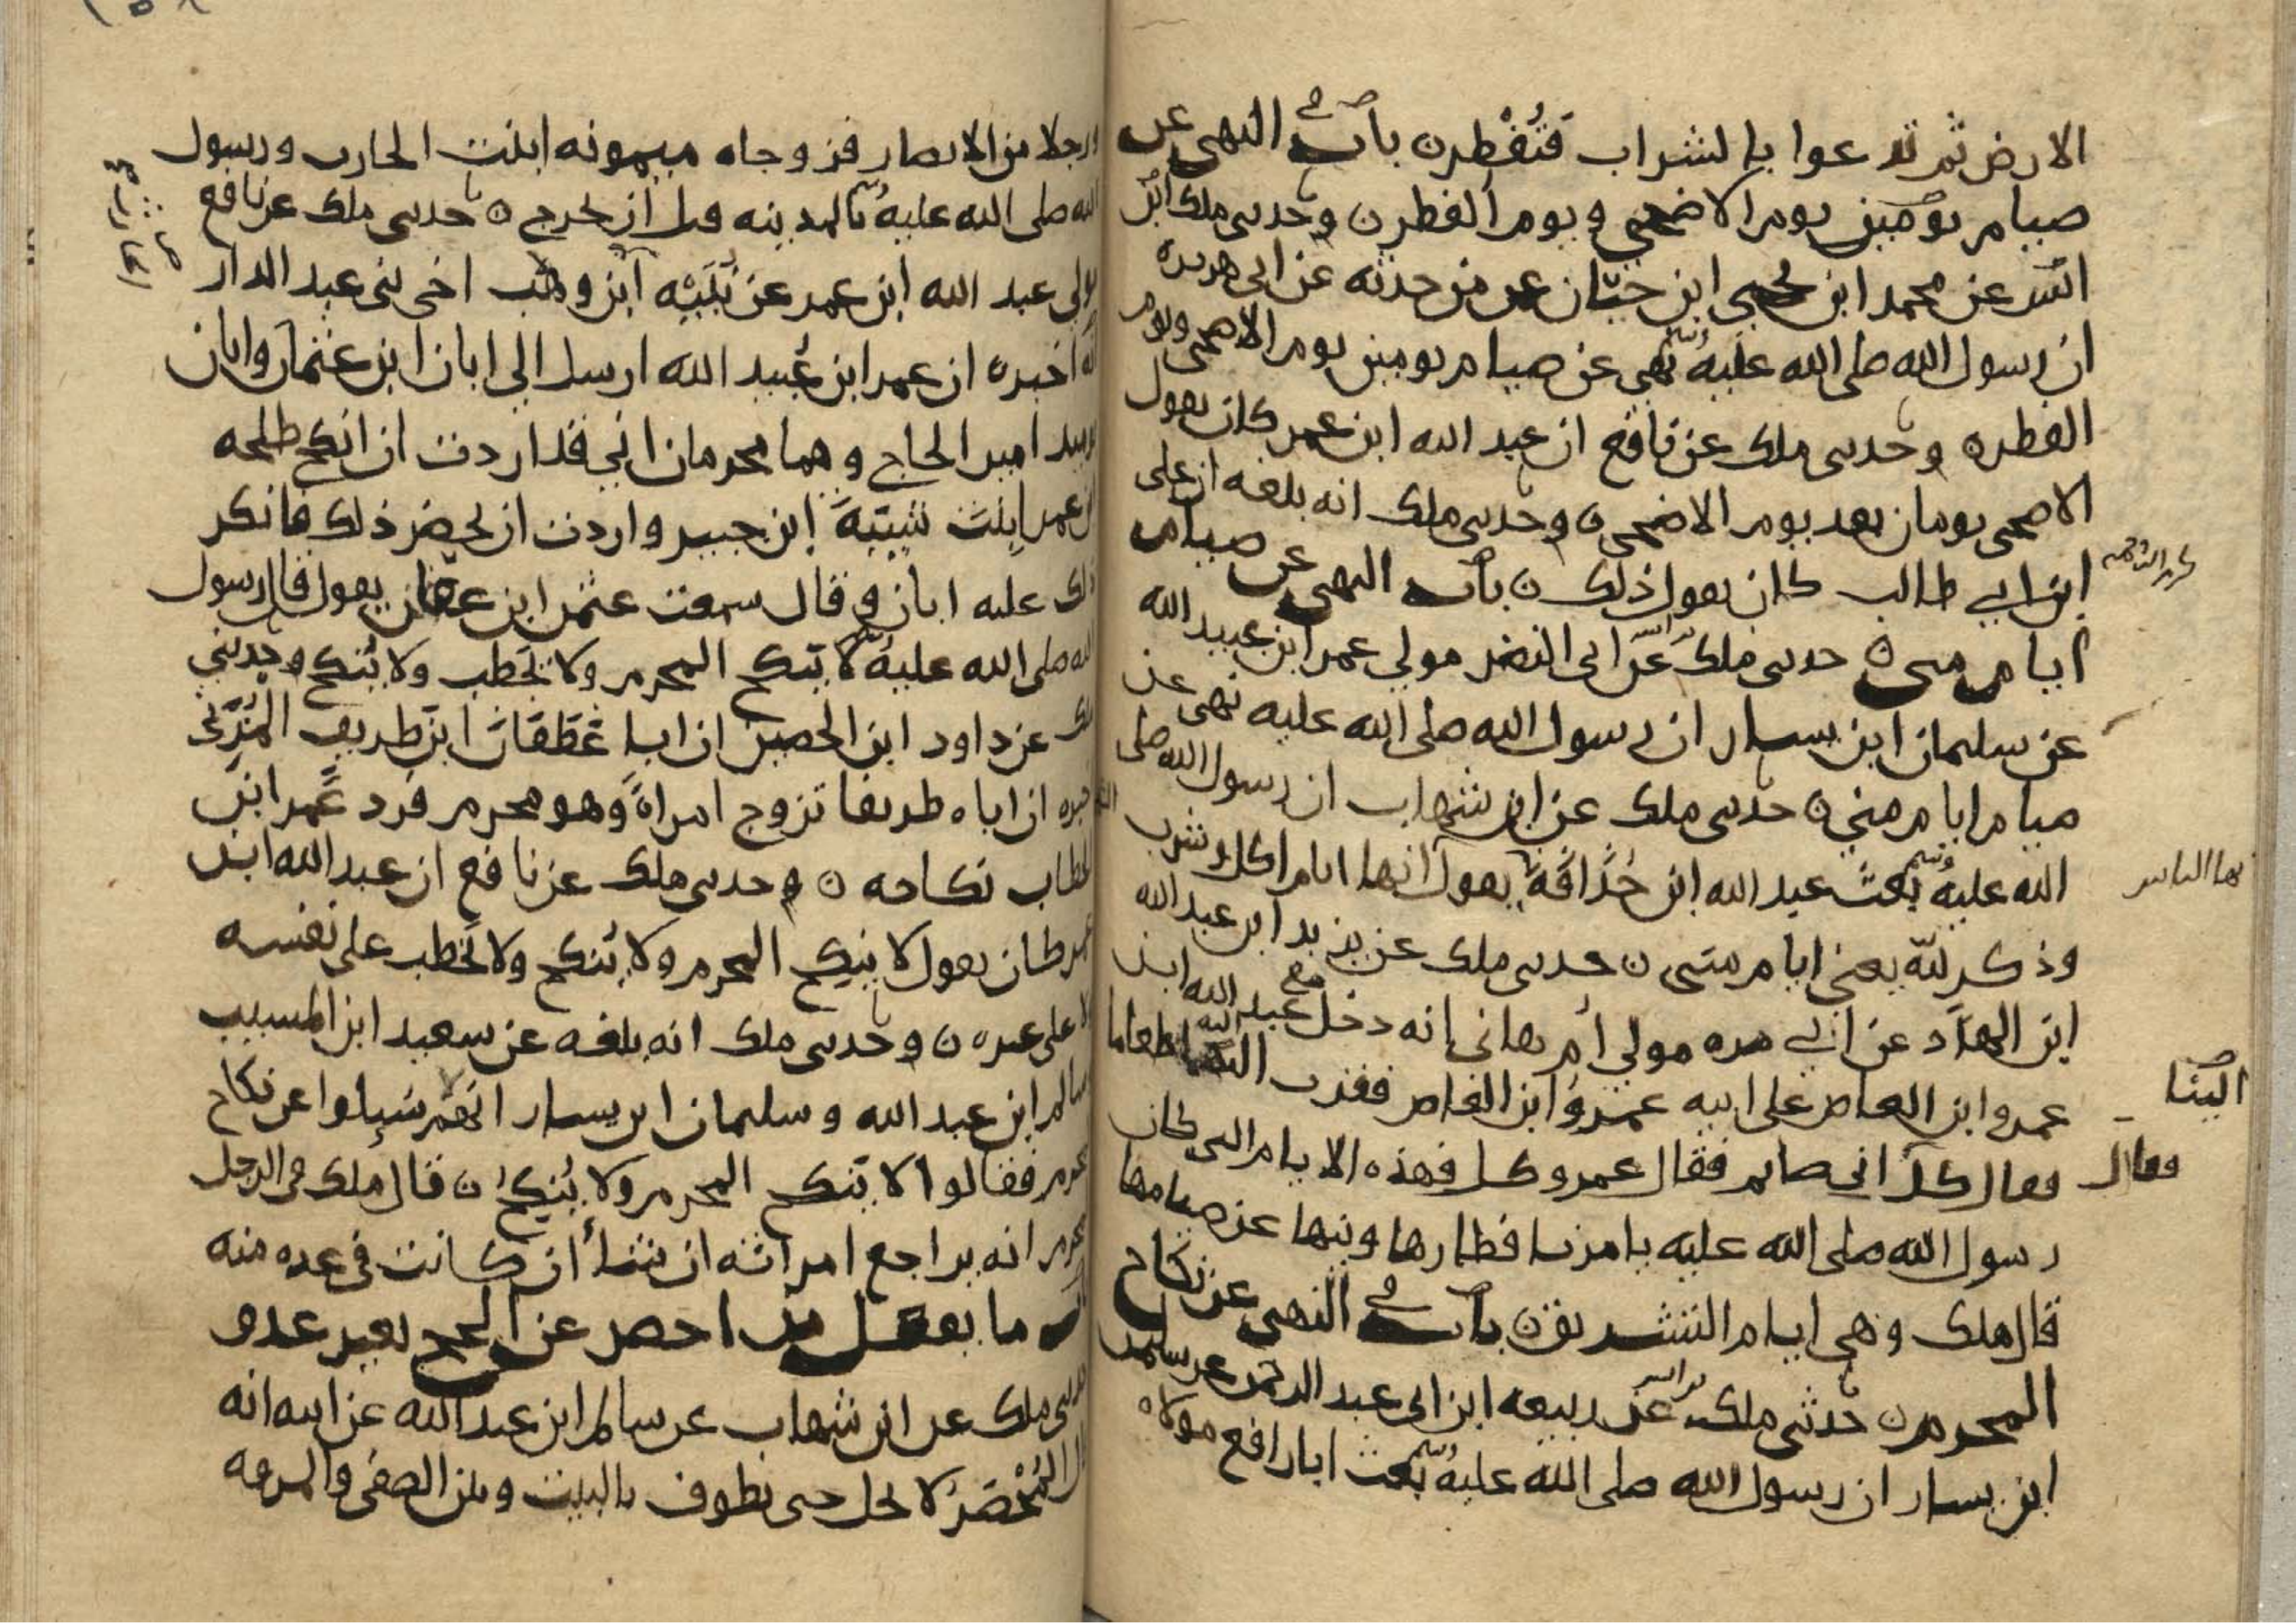 الارض ثم تدعوا بالشراب فتفطر ن باب في النهي عن
صيام يومين يوم الاضحى ويوم الفطر ن وحدثني ملك ابن
انس عن محمد ابن يحيى ابن حبان عن من حدثه عن ابي هريره
ان رسول الله صلى الله عليه وسلم نهى عن صيام يومين يوم الاضحى ويوم
الفطر ه وحدثني ملك عن نافع ان عبد الله ابن عمر كان يقول
الاضحى يومان بعد يوم الاضحى ن وحدثني ملك انه بلغه ان على
ابن ابي طالب كان يقول ذلك ن باب النهي عن صيام
ايام منى ن حدثني ملك ابن انس عن ابي النضر مولي عمر ابن عبيد الله
عن سليمان ابن يسار ان رسول الله صلى الله عليه نهى عن
صيام ايام منى ن حدثني ملك عن ابن شهاب ان رسول الله صلى
الله عليه وسلم بعث عبد الله ابن حذافة يقول انها ايام اكل وشرب
وذكر لله يعني ايام منى ن حدثني ملك عن يزيد ابن عبد الله
ابن الهاد عن ابي مره مولي ام هاني انه دخل مع عبد الله ابن
عمرو ابن العاص على ابيه عمرو ابن العاص فقرب اليه طعاما
الينا
فقال كل اني صايم فقال عمرو كل فهذه الايام التي كان
فقال
رسول الله صلى الله عليه يامرنا فطارها وينها عن صيامها
قال ملك وهي ايام التشريق ن باب في النهي عن نكاح
المحرم ن حدثني ملك ابن انس عن ربيعه ابن ابي عبد الرحمن عن سليمن
ابن يسار ان رسول الله صلى الله عليه وسلم بعث ابا رافع مولاه
ورجلا من الانصار فزوجاه ميمونه ابنت الحارث ورسول
الله صلى الله عليه وسلم بالمدينه قبل ان يخرج ن حدثني ملك عن نافع
مولي عبد الله ابن عمر عن نبيه ابن وهب اخي بني عبد الدار
انه اخبره ان عمر ابن عبيد الله ارسل الي ابان ابن عثمان وابان
يوميد امير الحاج وهما محرمان اني قد اردت ان انكح طلحه
ابن عمر ابنت شيبة ابن جبير واردت ان يحضر ذلك فانكر
ذلك عليه ابان وقال سمعت عثمن ابن عفان يقول قال رسول
الله صلى الله عليه وسلم لا ينكح المحرم ولا يخطب ولا ينكح وحدثني
ملك عن داود ابن الحصين ان ابا غطفان ابن طريف المري
اخبره ان اباه طريفا تزوج امراة وهو محرم فرد عمر ابن
الخطاب نكاحه ن وحدثني ملك عن نافع ان عبد الله ابن
عمر كان يقول لا ينكح المحرم ولا ينكح ولا يخطب على نفسه
ولا على غيره ن وحدثني ملك انه بلغه عن سعيد ابن المسيب
وسالم ابن عبد الله وسليمان ابن يسار انهم سيلوا عن نكاح
المحرم فقالوا لا ينكح المحرم ولا ينكح ن قال ملك في الرجل
المحرم انه يراجع امراته ان شا ان كانت في عده منه
باب ما يفعل من احصر عن الحج بغير عدو
حدثني ملك عن ابن شهاب عن سالم ابن عبد الله عن ابيه انه
قال المحصر لا يحل حتى يطوف بالبيت وبين الصفى والمروه